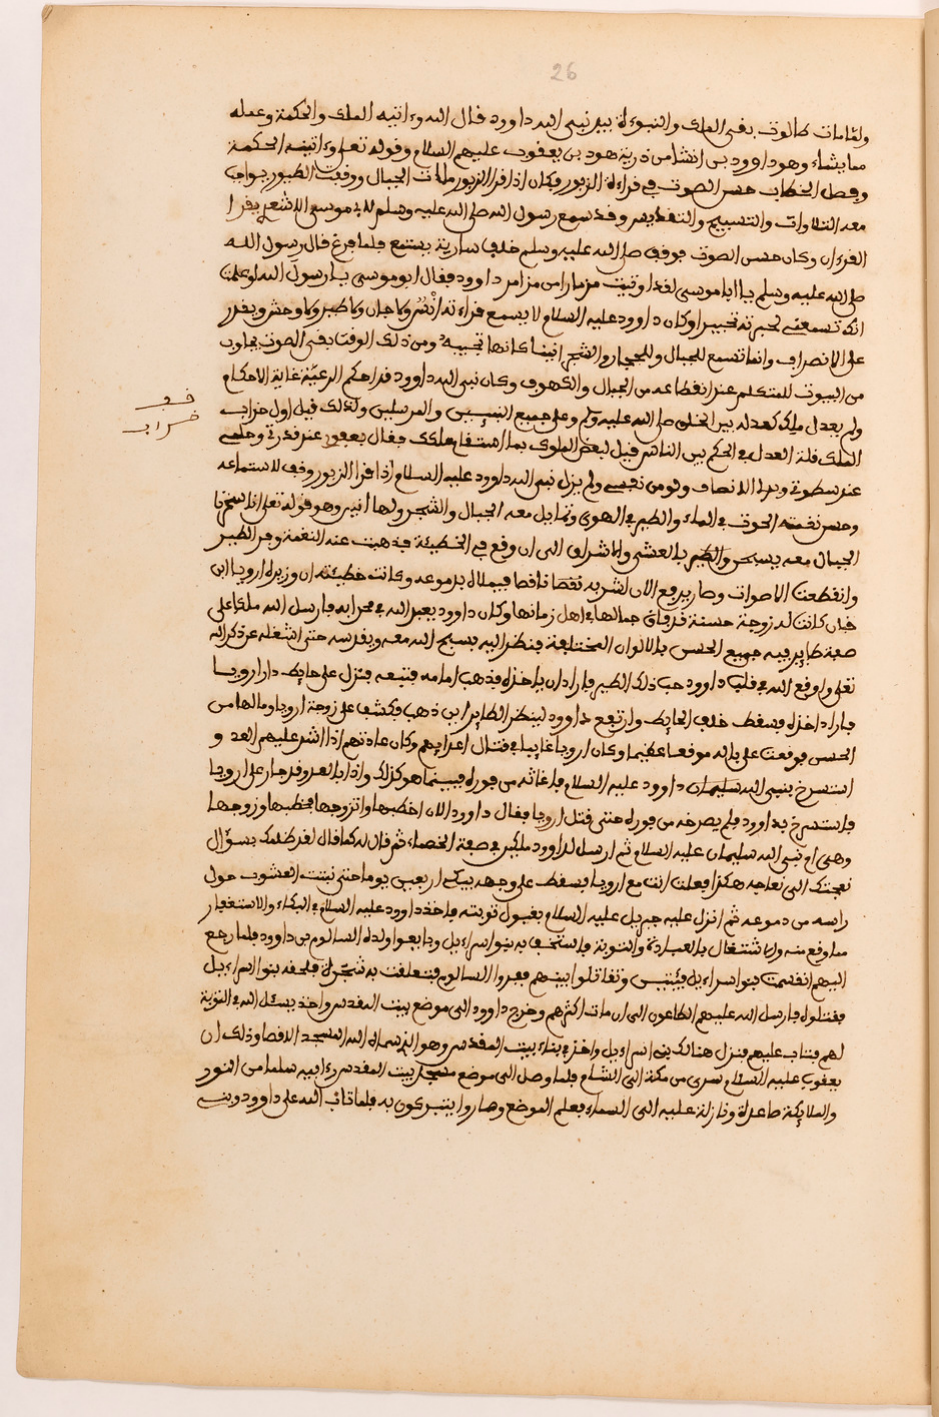 26
ولما مات طالوت بقى الملك والنبوءة بيد نبي الله داوود قال الله وءاتيه الملك والحكمة وعلمه
مما يشاء وهو داوود بن انشا من ذرية هود بن يعقوب عليهم السلام وقوله تعلى وءاتينه الحكمة
وفصل الخطاب حسن الصوت في قراءة الزبور وكان اذا قرا الزبور مالت الجبال ووقفت الطيور يجواب
معه التلاوات والتسبيح والتقديس وقد سمع رسول الله صلى الله عليه وسلم لابي موسى الاشعري يقرا
القرءان وكان حسن الصوت فوقف صلى الله عليه وسلم خلف سارية يستمع فلما فرغ قال رسول الله
صلى الله عليه وسلم يا ابا موسى لقد اوتيت مزمارا من مزامر داوود فقال ابو موسى يا رسول الله لو علمت
انك تسمعني لحبرته تحبيرا وكان داوود عليه السلام لا يسمع قراءته انس ولا جان ولا طير ولا وحش ويقدر
على الانصراف وانما تسمع للجبال وللحجار والشجر انينا كانها تجيبه ومن ذلك الوقت بقى الصوت يجاوب
من البيوت للمتكلم عند انقطاعه من الجبال والكهوف وكان نبي الله داوود قد احكم الرعية غاية الاحكام
ولم يعدل ملك كعدله بين الخلق صلى الله عليه وسلم وعلى جميع النبيين والمرسلين ولذلك قيل اول خراب
قف
خراب
الملك قلة العدل في الحكم بين الناس قيل لبعض الملوك بما استقام ملكك فقال بعفوي عند قدرتي وحلمي
عند سطوتي وبذل الانصاف ولو من نفسي ولم يزل نبي الله داوود عليه السلام اذا قرا الزبور وقف لاستماعه
وحسن نغمته الحوت في الماء والطير في الهوى وتمايل معه الجبال والشجر ولها انين وهو قوله تعلى انا سخرنا
الجبال معه يسبحن والطير بالعشي والاشراق الى ان وقع في الخطيئة فذهبت عنه النغمة وفر الطير
وانقطعت الاصوات وصار يرفع الان لشربه نقصا ناقصا فيملا بدموعه وكانت خطيئته ان وزيره اوريا ابن
حنان كانت له زوجة حسنة قد فاق جمالها في اهل زمانها وكان داوود يعبد الله في محرابه فارسل الله ملكا على
صفة طاير فيه جميع الحسن بالالوان المختلفة فنظر اليه يسبح الله معه ويقدسه حتى اشغله عن ذكر الله
تعلى واوقع الله في قلب داوود حب ذلك الطير فاراد ان ياخذه فذهب امامه فتبعه فنزل على حايط دار اوريا
فاراد اخذه فسقط خلف الحايط وارتفع داوود لينظر الطاير اين ذهب فكشف على زوجة اوريا وما لها من
الحسن فوقعت على باله موقعا عظيما وكان اوريا غايبا في قتال اعدايهم وكان عادتهم اذا اشر عليهم العدو
استسرخ بنبي الله سليمان داوود عليه السلام فاغاثه من فوره فبينما هو كذلك واذا بالعدو قد جار على اوريا
فاستسرخ بداوود فلم يصرخه من فوره حتى قتل اوريا فقال داوود الان اخطبها واتزوجها فخطبها وزوجها
وهي ام نبي الله سليمان عليه السلام ثم ارسل لداوود ملكين في صفة الخصماء ثم قال له كما قال لقد ظلمك بسؤال
نعجتك الى نعاجه هكذا فعلت انت مع اوريا فسقط على وجهه يبكي اربعين يوما حتى نبتت العشوب حول
راسه من دموعه ثم انزل عليه جبريل عليه السلام بقبول توبته فاخذ داوود عليه السلام في البكاء والاستغفار
مما وقع منه والاشتغال بالعبادة والتوبة فاستخف به بنوا سراءيل وبايعوا ولده السالوم بن داوود فلما رجع
اليهم انقسمت بنوا سراءيل فئتين وتقاتلوا بينهم ففروا السالوم فتعلقت به شجرة فلحقه بنوا اسراءيل
فقتلوه فارسل الله عليهم الطاعون الى ان مات اكثرهم وخرج داوود الى موضع بيت المقدس واخذ يسئل الله في التوبة
لهم فتاب عليهم فنزل هنالك بني اسراءيل واخذ في بناء بيت المقدس وهو الذي سماه الله المسجد الاقصا وذلك ان
يعقوب عليه السلام سرى من مكة الى الشام فلما وصل الى موضع مسجد بيت المقدس رءا فيه سلما من النور
والملايكة صاعدة ونازلة عليه الى السماء فعلم الموضع وصاروا يتبركون به فلما تاب الله على داوود وبني